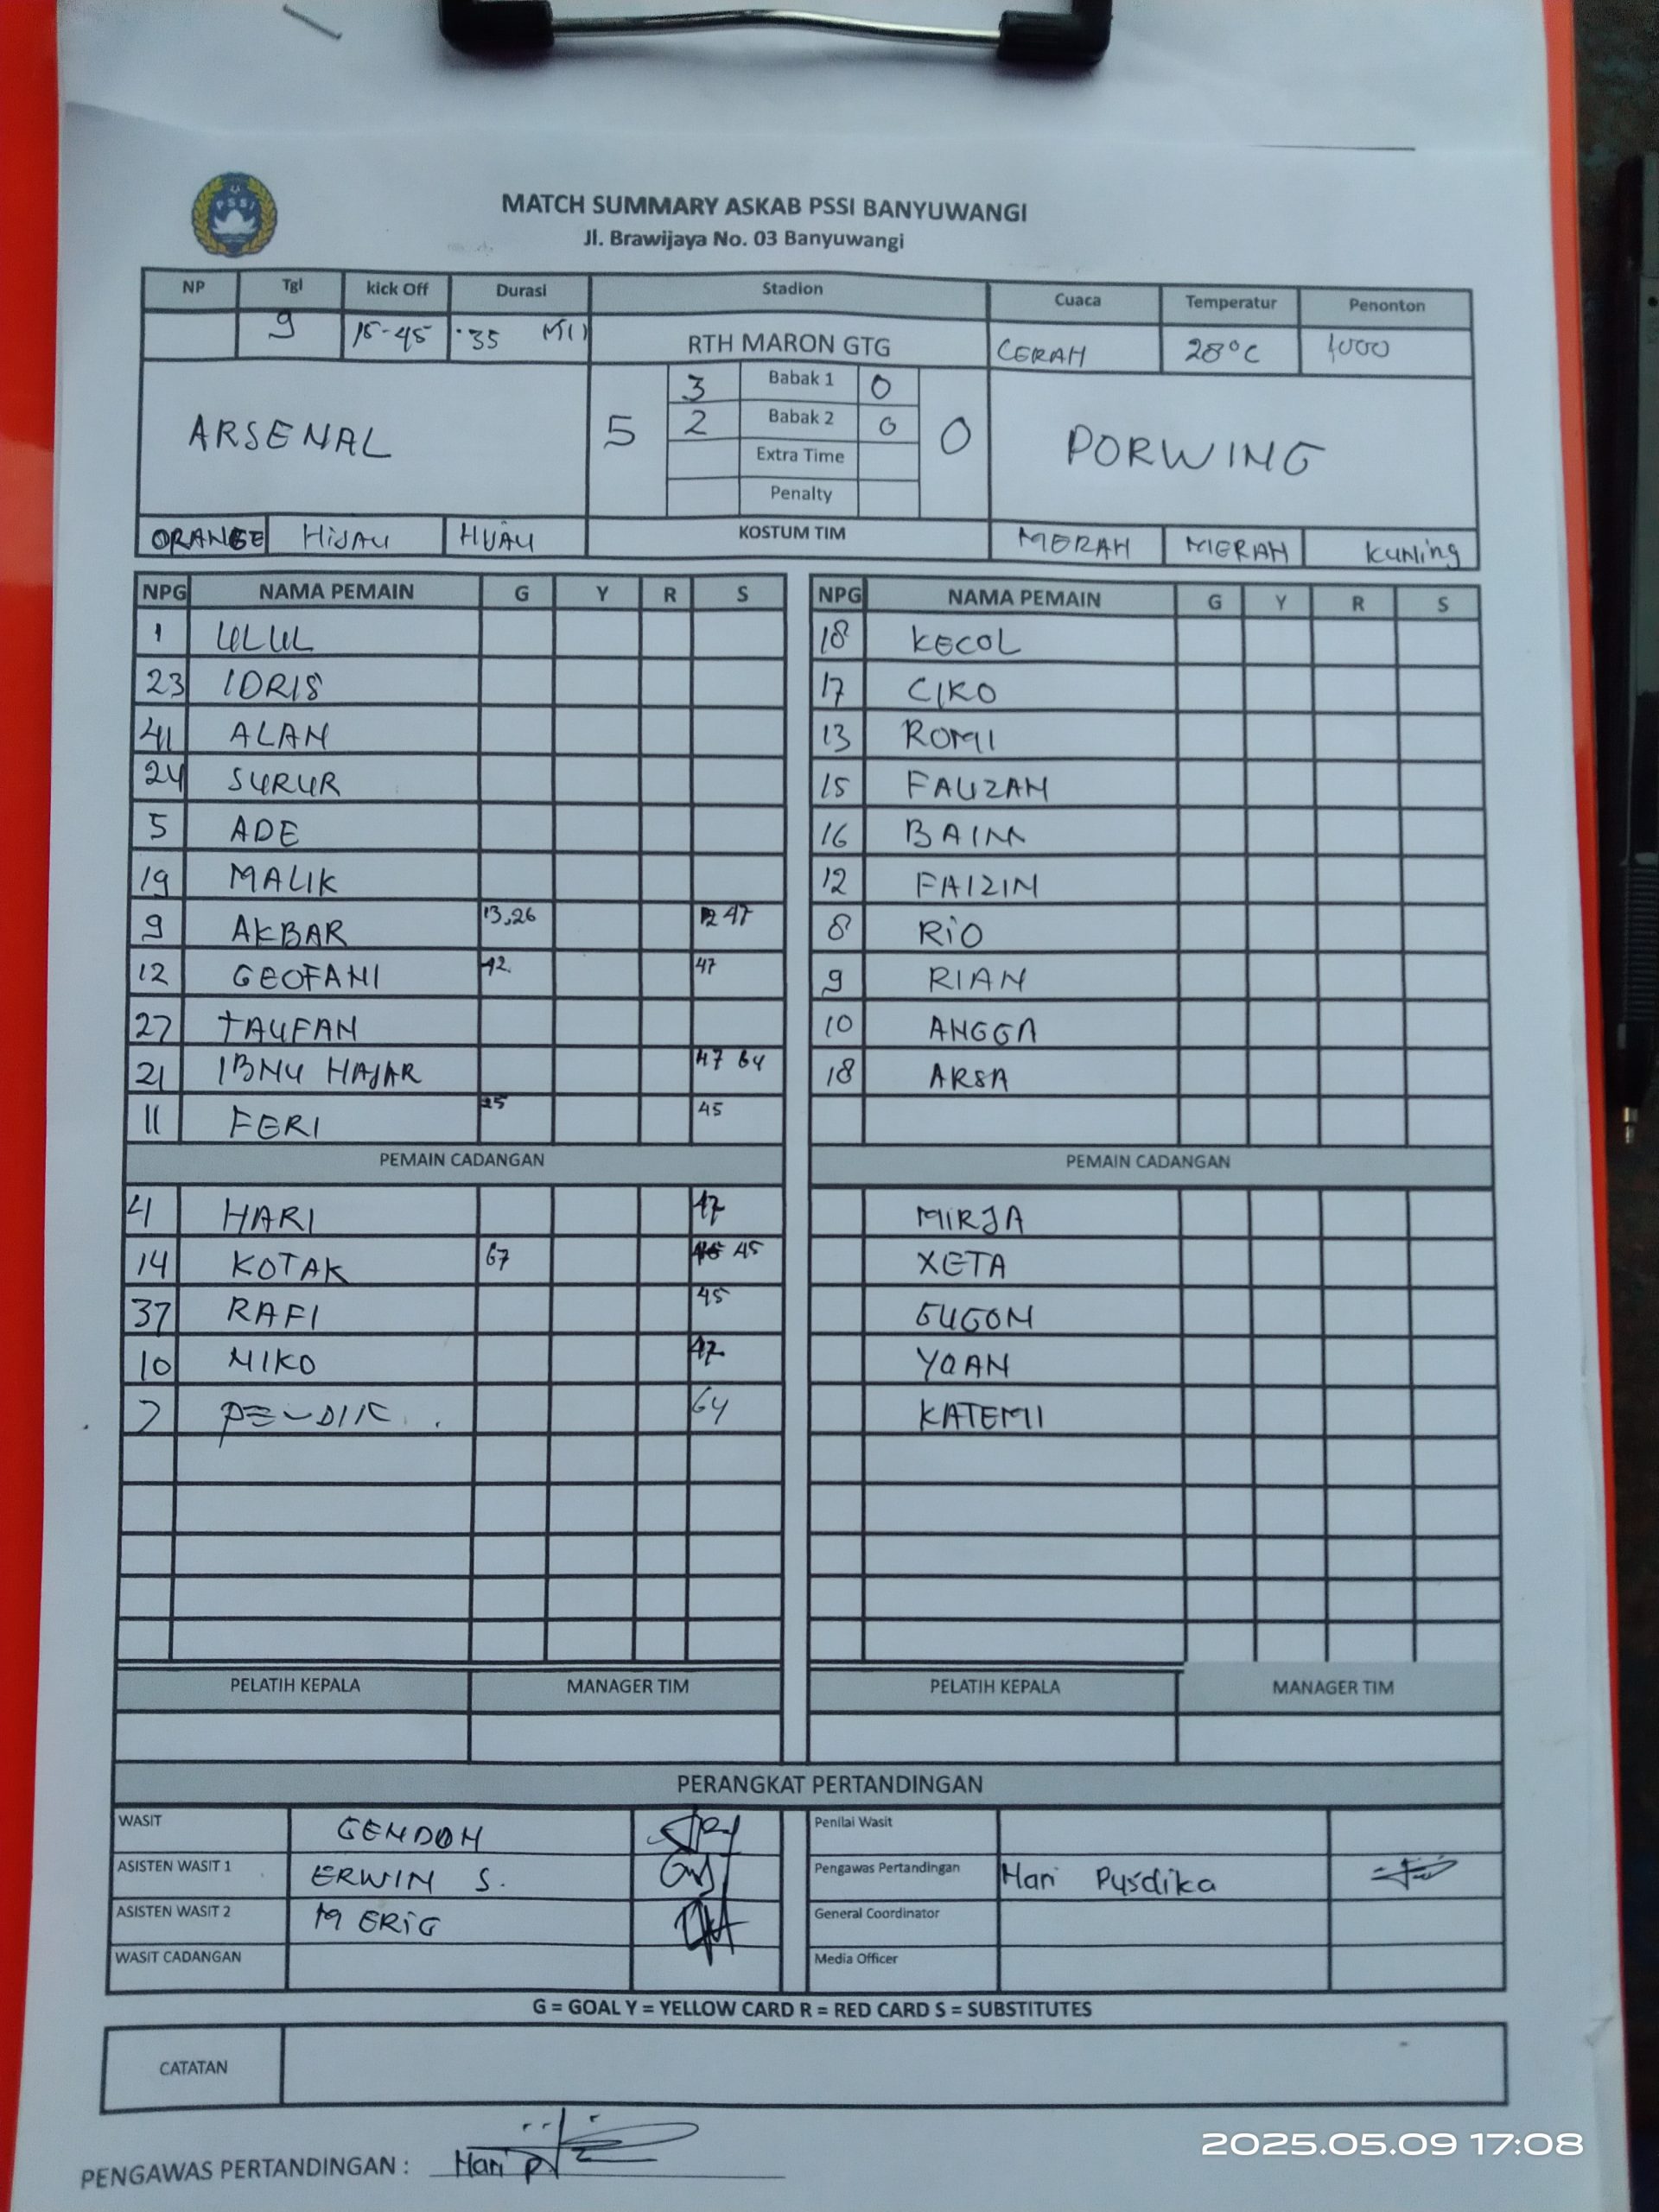 PSSI
MATCH SUMMARY ASKAB PSSI BANYUWANGI
Jl. Brawijaya No. 03 Banyuwangi
NP Tgl kick Off Durasi Stadion Cuaca Temperatur Penonton
9 15-45 35 RTH MARON GTG CERAH 28°C 1000
ARSENAL 5 0 PORWING
3 Babak 1 0
2 Babak 2 0
Extra Time
Penalty
ORANGE HIJAU HIJAU KOSTUM TIM MERAH MERAH KUNING
NPG NAMA PEMAIN G Y R S NPG NAMA PEMAIN G Y R S
1 ULUL 18 KECOL
23 IDRIS 17 CIKO
41 ALAN 13 ROMI
24 SURUR 15 FAUZAN
5 ADE 16 BAIM
19 MALIK 12 FAIZIN
9 AKBAR 13,26 47 8 RIO
12 GEOFANI 42 47 9 RIAN
27 TAUFAN 10 ANGGA
21 IBNU HAJAR 47 64 18 ARSA
11 FERI 25 45
PEMAIN CADANGAN PEMAIN CADANGAN
4 HARI 47 MIRJA
14 KOTAK 67 45 XETA
37 RAFI 45 GUGON
10 NIKO 47 YOAN
7 64 KATEMI
PELATIH KEPALA MANAGER TIM PELATIH KEPALA MANAGER TIM
PERANGKAT PERTANDINGAN
WASIT GENDON Penilai Wasit
ASISTEN WASIT 1 ERWIN S. Pengawas Pertandingan Hari Pusdika
ASISTEN WASIT 2 M ERIG General Coordinator
WASIT CADANGAN Media Officer
G = GOAL Y = YELLOW CARD R = RED CARD S = SUBSTITUTES
CATATAN
PENGAWAS PERTANDINGAN : Hari P
2025.05.09 17:08